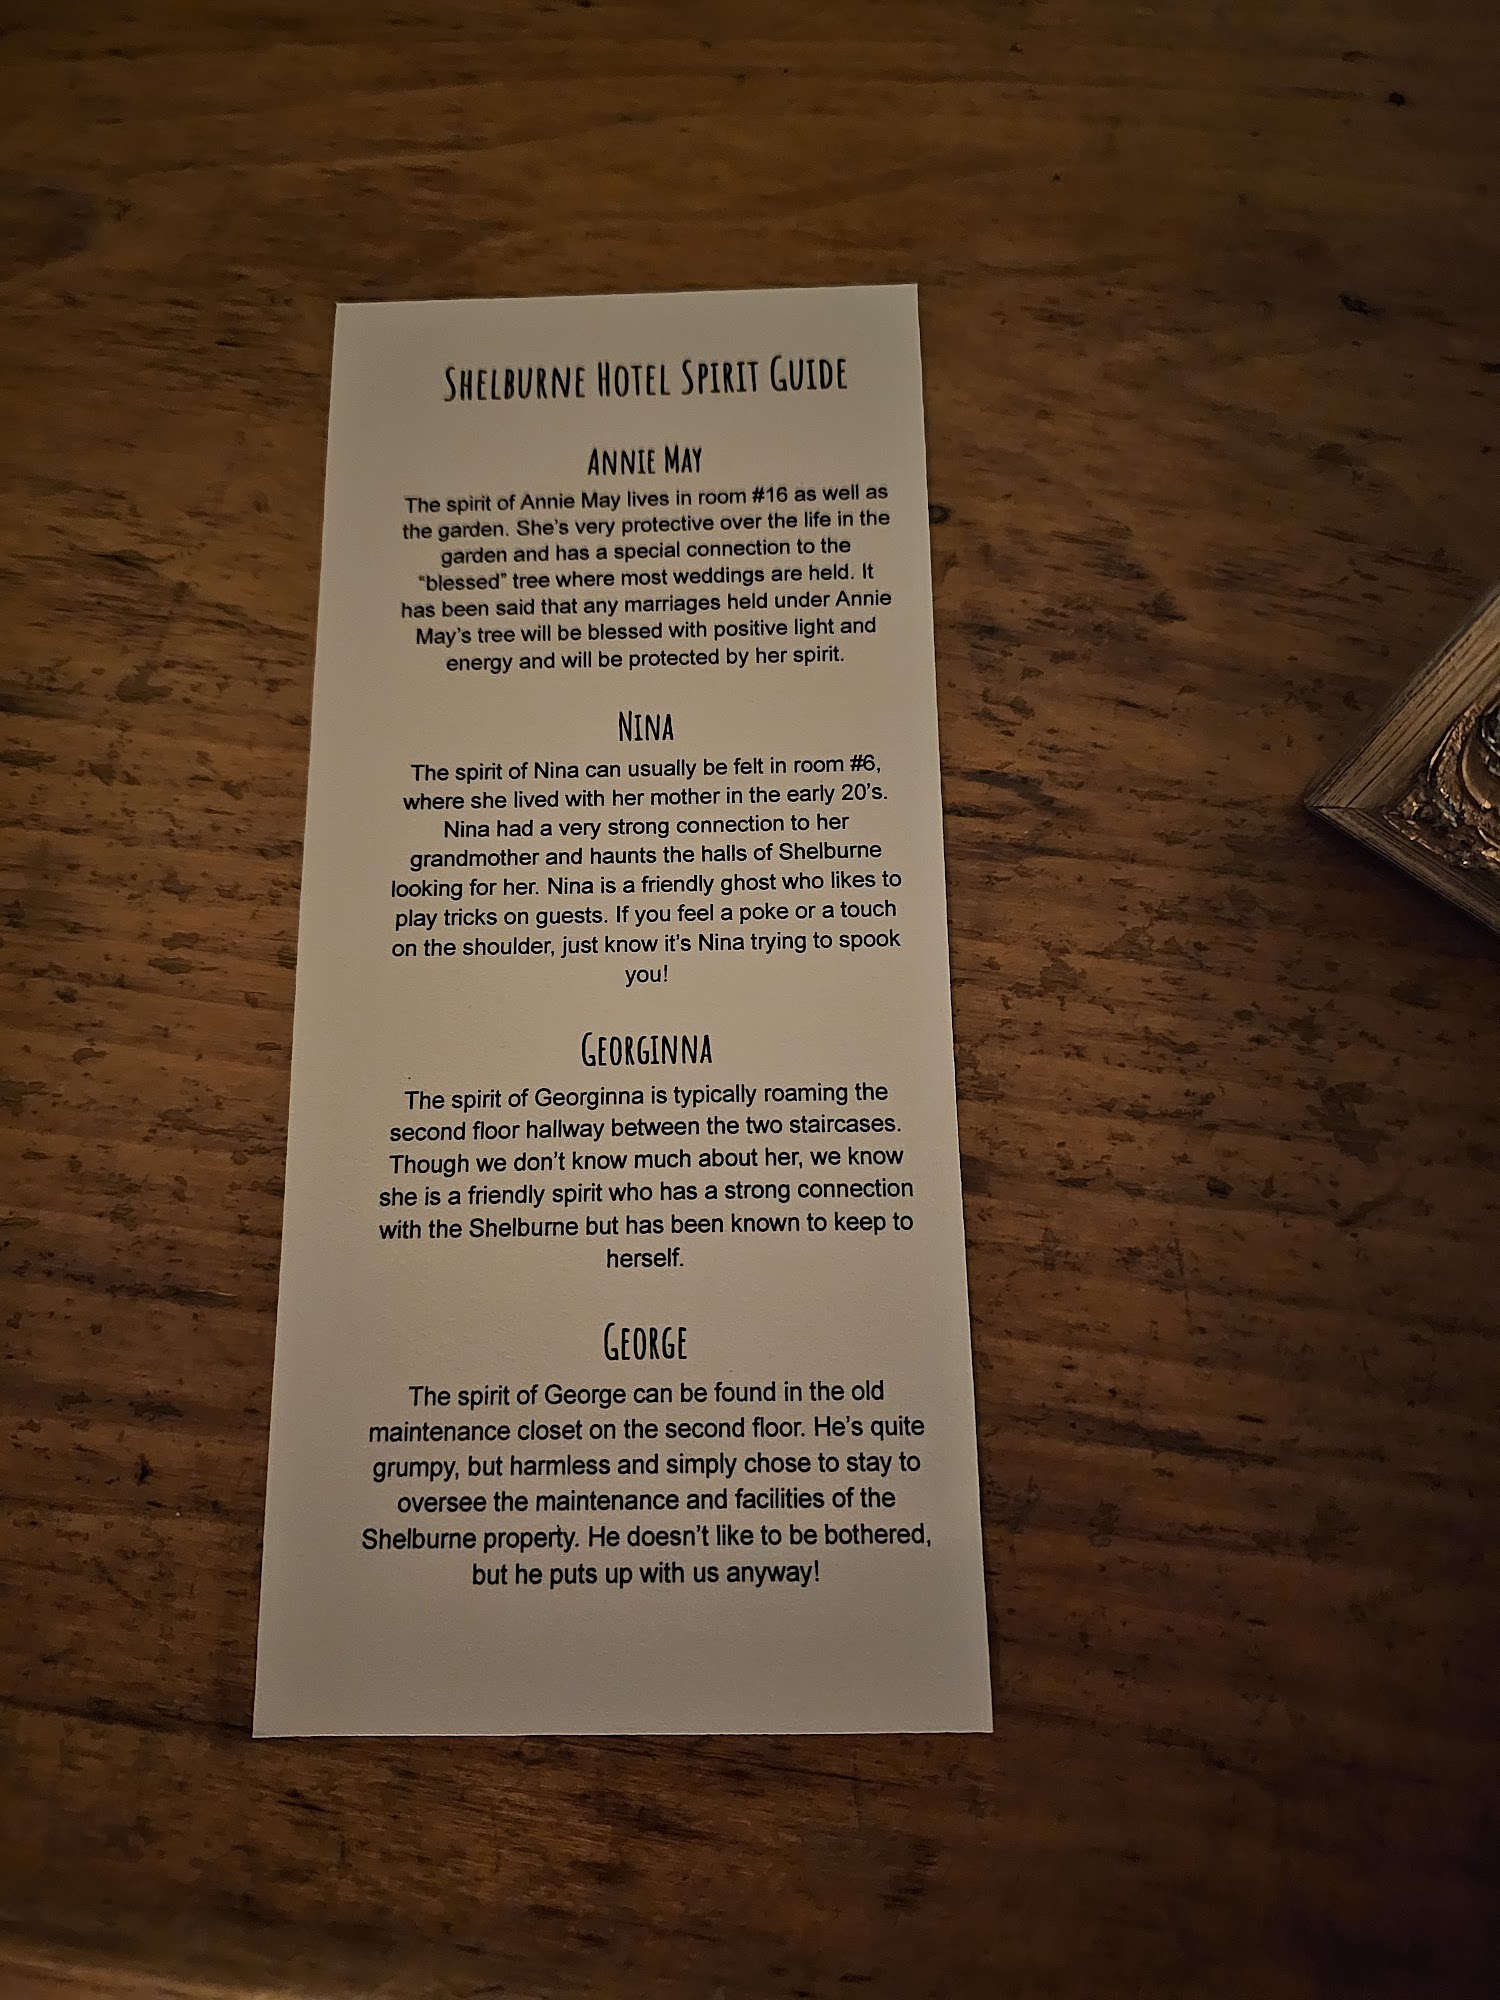 Shelburne Hotel Spirit Guide
Annie May
The spirit of Annie May lives in room #16 as well as
the garden. She's very protective over the life in the
garden and has a special connection to the
“blessed” tree where most weddings are held. It
has been said that any marriages held under Annie
May's tree will be blessed with positive light and
energy and will be protected by her spirit.
Nina
The spirit of Nina can usually be felt in room #6,
where she lived with her mother in the early 20's.
Nina had a very strong connection to her
grandmother and haunts the halls of Shelburne
looking for her. Nina is a friendly ghost who likes to
play tricks on guests. If you feel a poke or a touch
on the shoulder, just know it's Nina trying to spook
you!
Georginna
The spirit of Georginna is typically roaming the
second floor hallway between the two staircases.
Though we don't know much about her, we know
she is a friendly spirit who has a strong connection
with the Shelburne but has been known to keep to
herself.
George
The spirit of George can be found in the old
maintenance closet on the second floor. He's quite
grumpy, but harmless and simply chose to stay to
oversee the maintenance and facilities of the
Shelburne property. He doesn't like to be bothered,
but he puts up with us anyway!